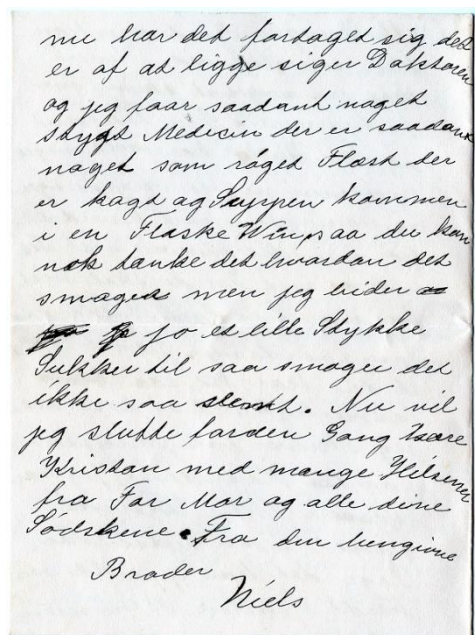 nu har det fortaget sig det
er af at ligge siger Doktoren
og jeg faar saadant noget
stygt Medecin der er saadant
noget som røget Flæsk der
er kogt og Suppen kommen
i en Flaske Vin, saa du kan
nok tænke det hvordan det
smager men jeg bider
jo et lille Stykke
Sukker til saa smager det
ikke saa slemt. Nu vil
jeg slutte forden Gang kære
Kristian med mange Hilsener
fra Far Mor og alle dine
Södskene. Fra din hengivne
Broder
Niels